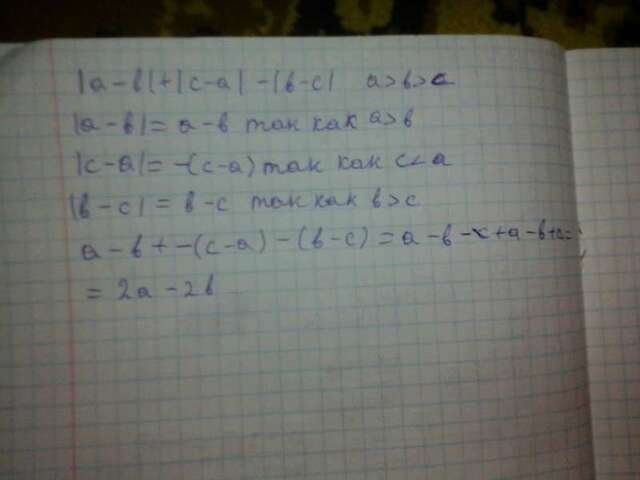 |a-b|+|c-a|-|b-c| a>b>c
|a-b|=a-b так как a>b
|c-a|=-(c-a) так как c<a
|b-c|=b-c так как b>c
a-b+-(c-a)-(b-c)=a-b-c+a-b+c=
=2a-2b